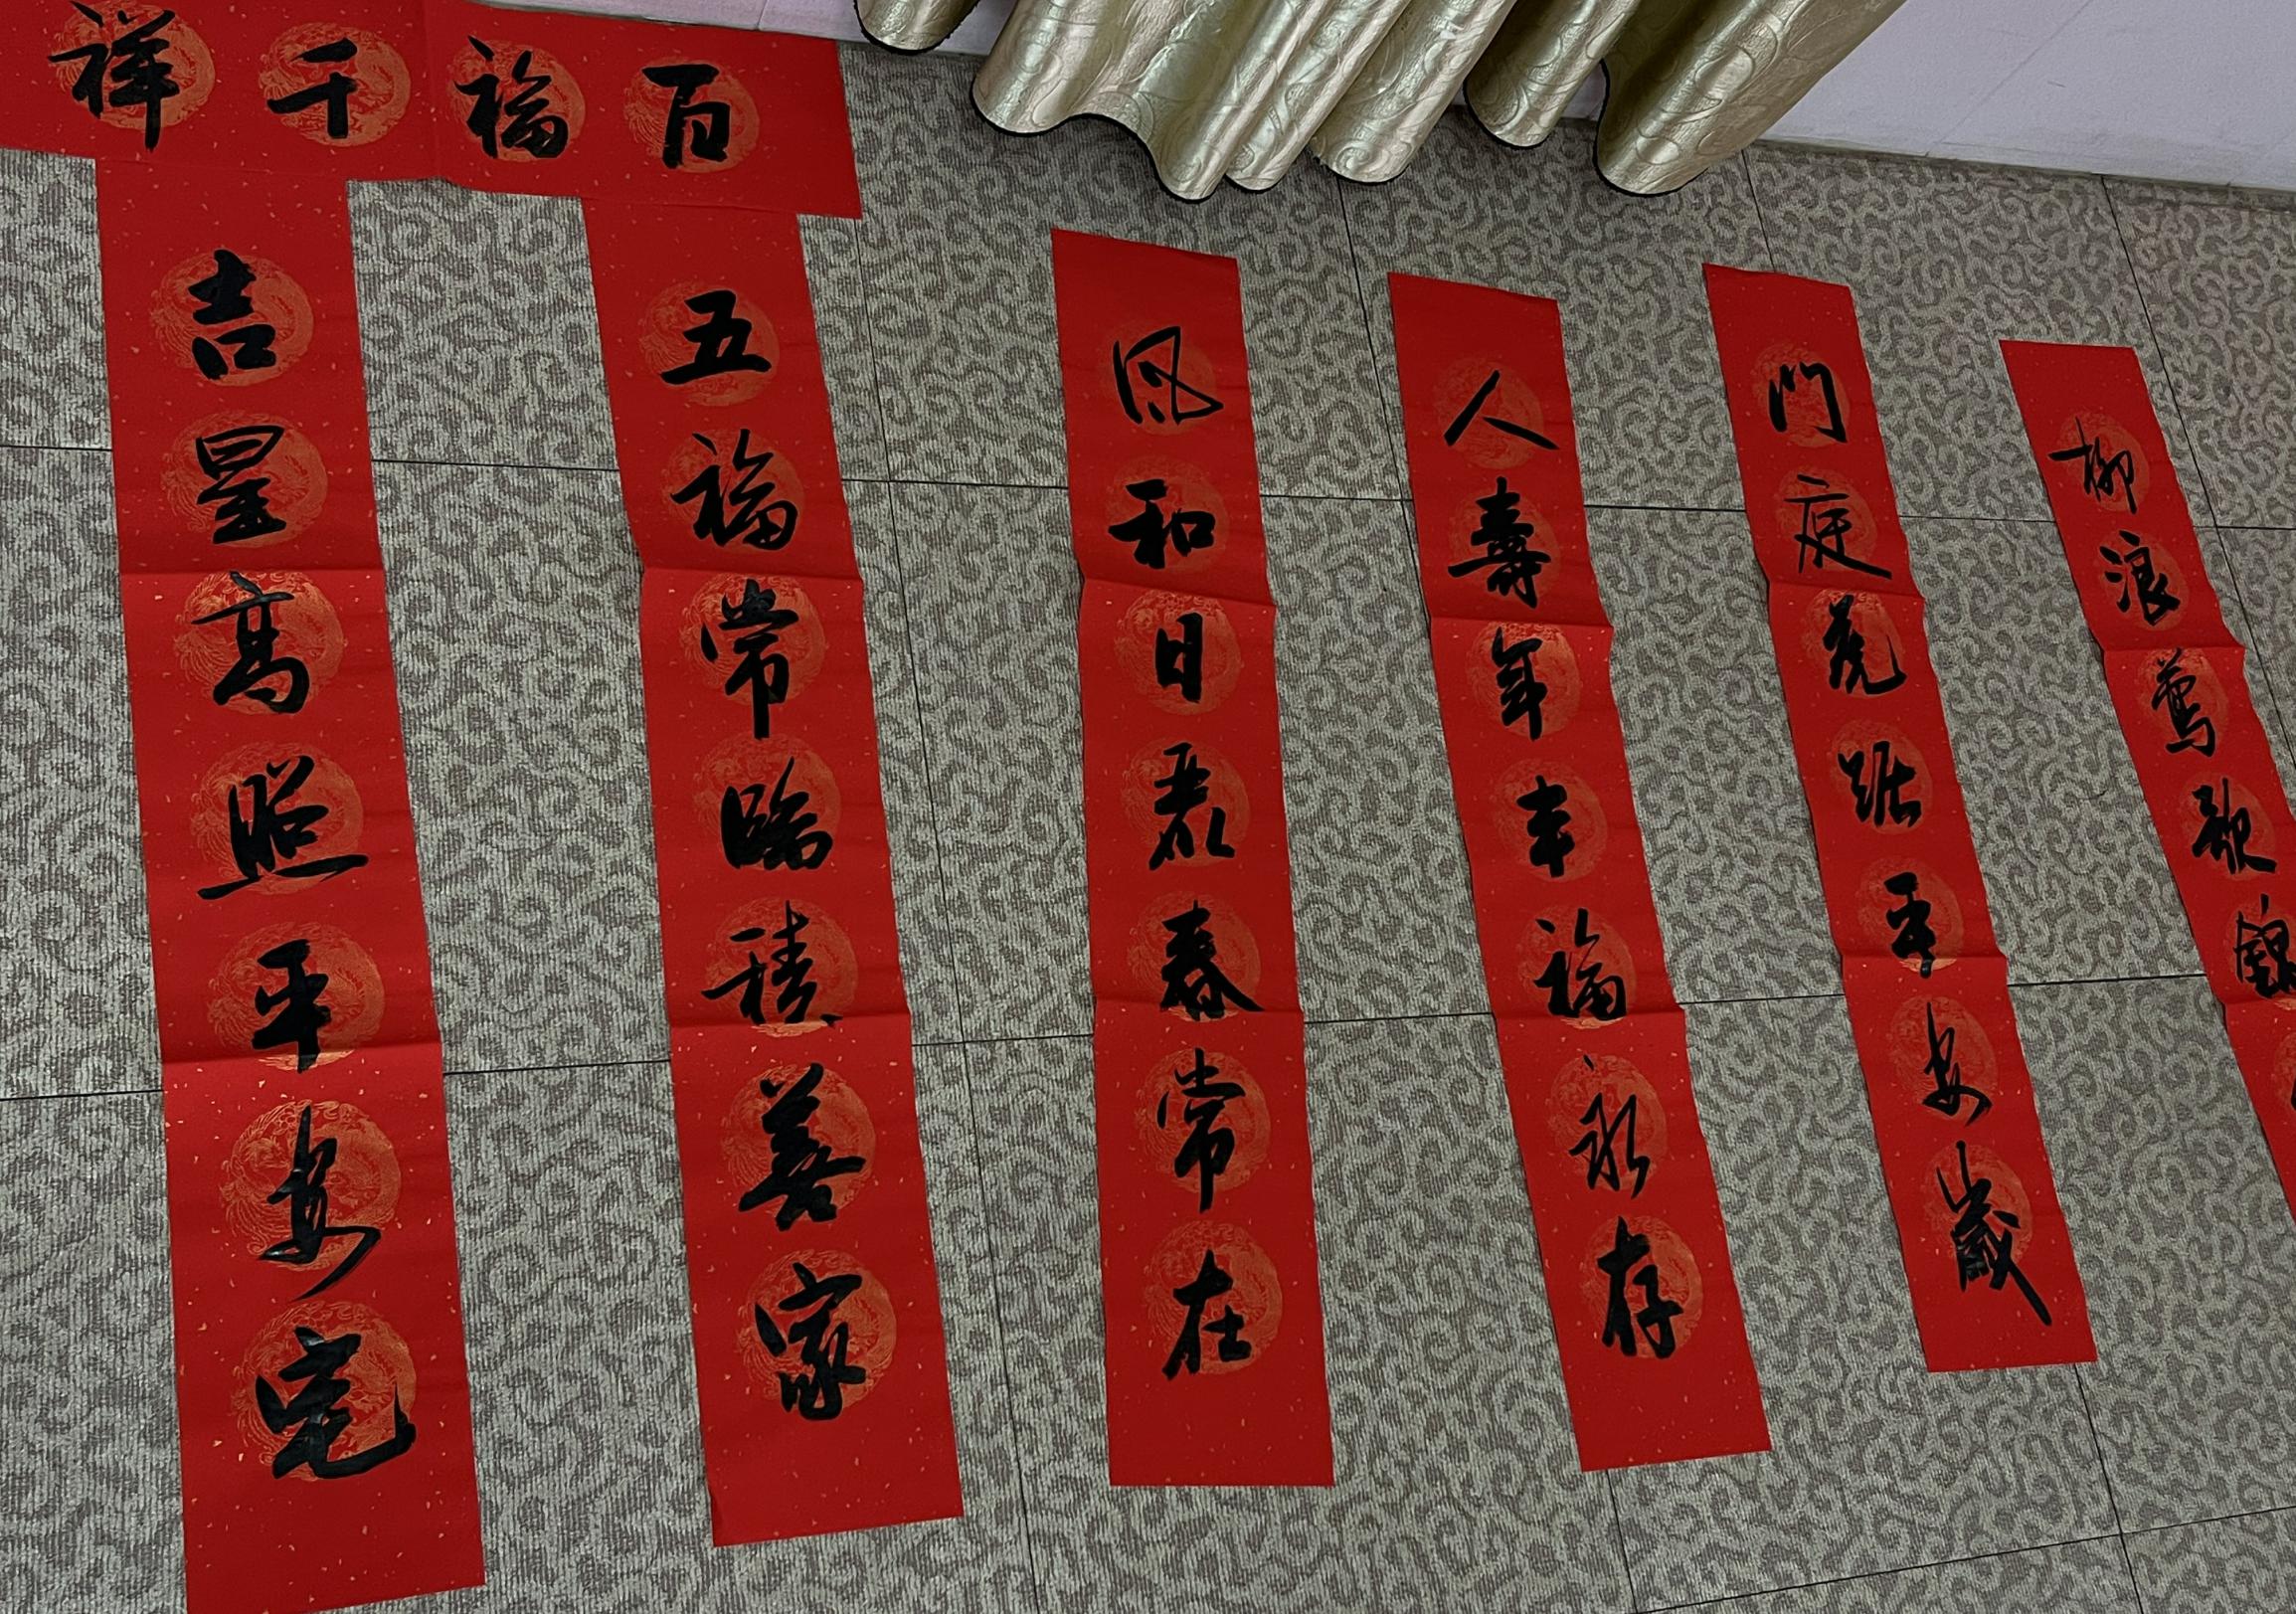 百福千祥
柳浪莺歌錦
門庭虎踞平安歲
人壽年丰福永存
风和日麗春常在
五福常臨積善家
吉星高照平安宅